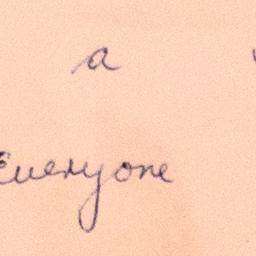 a
Everyone